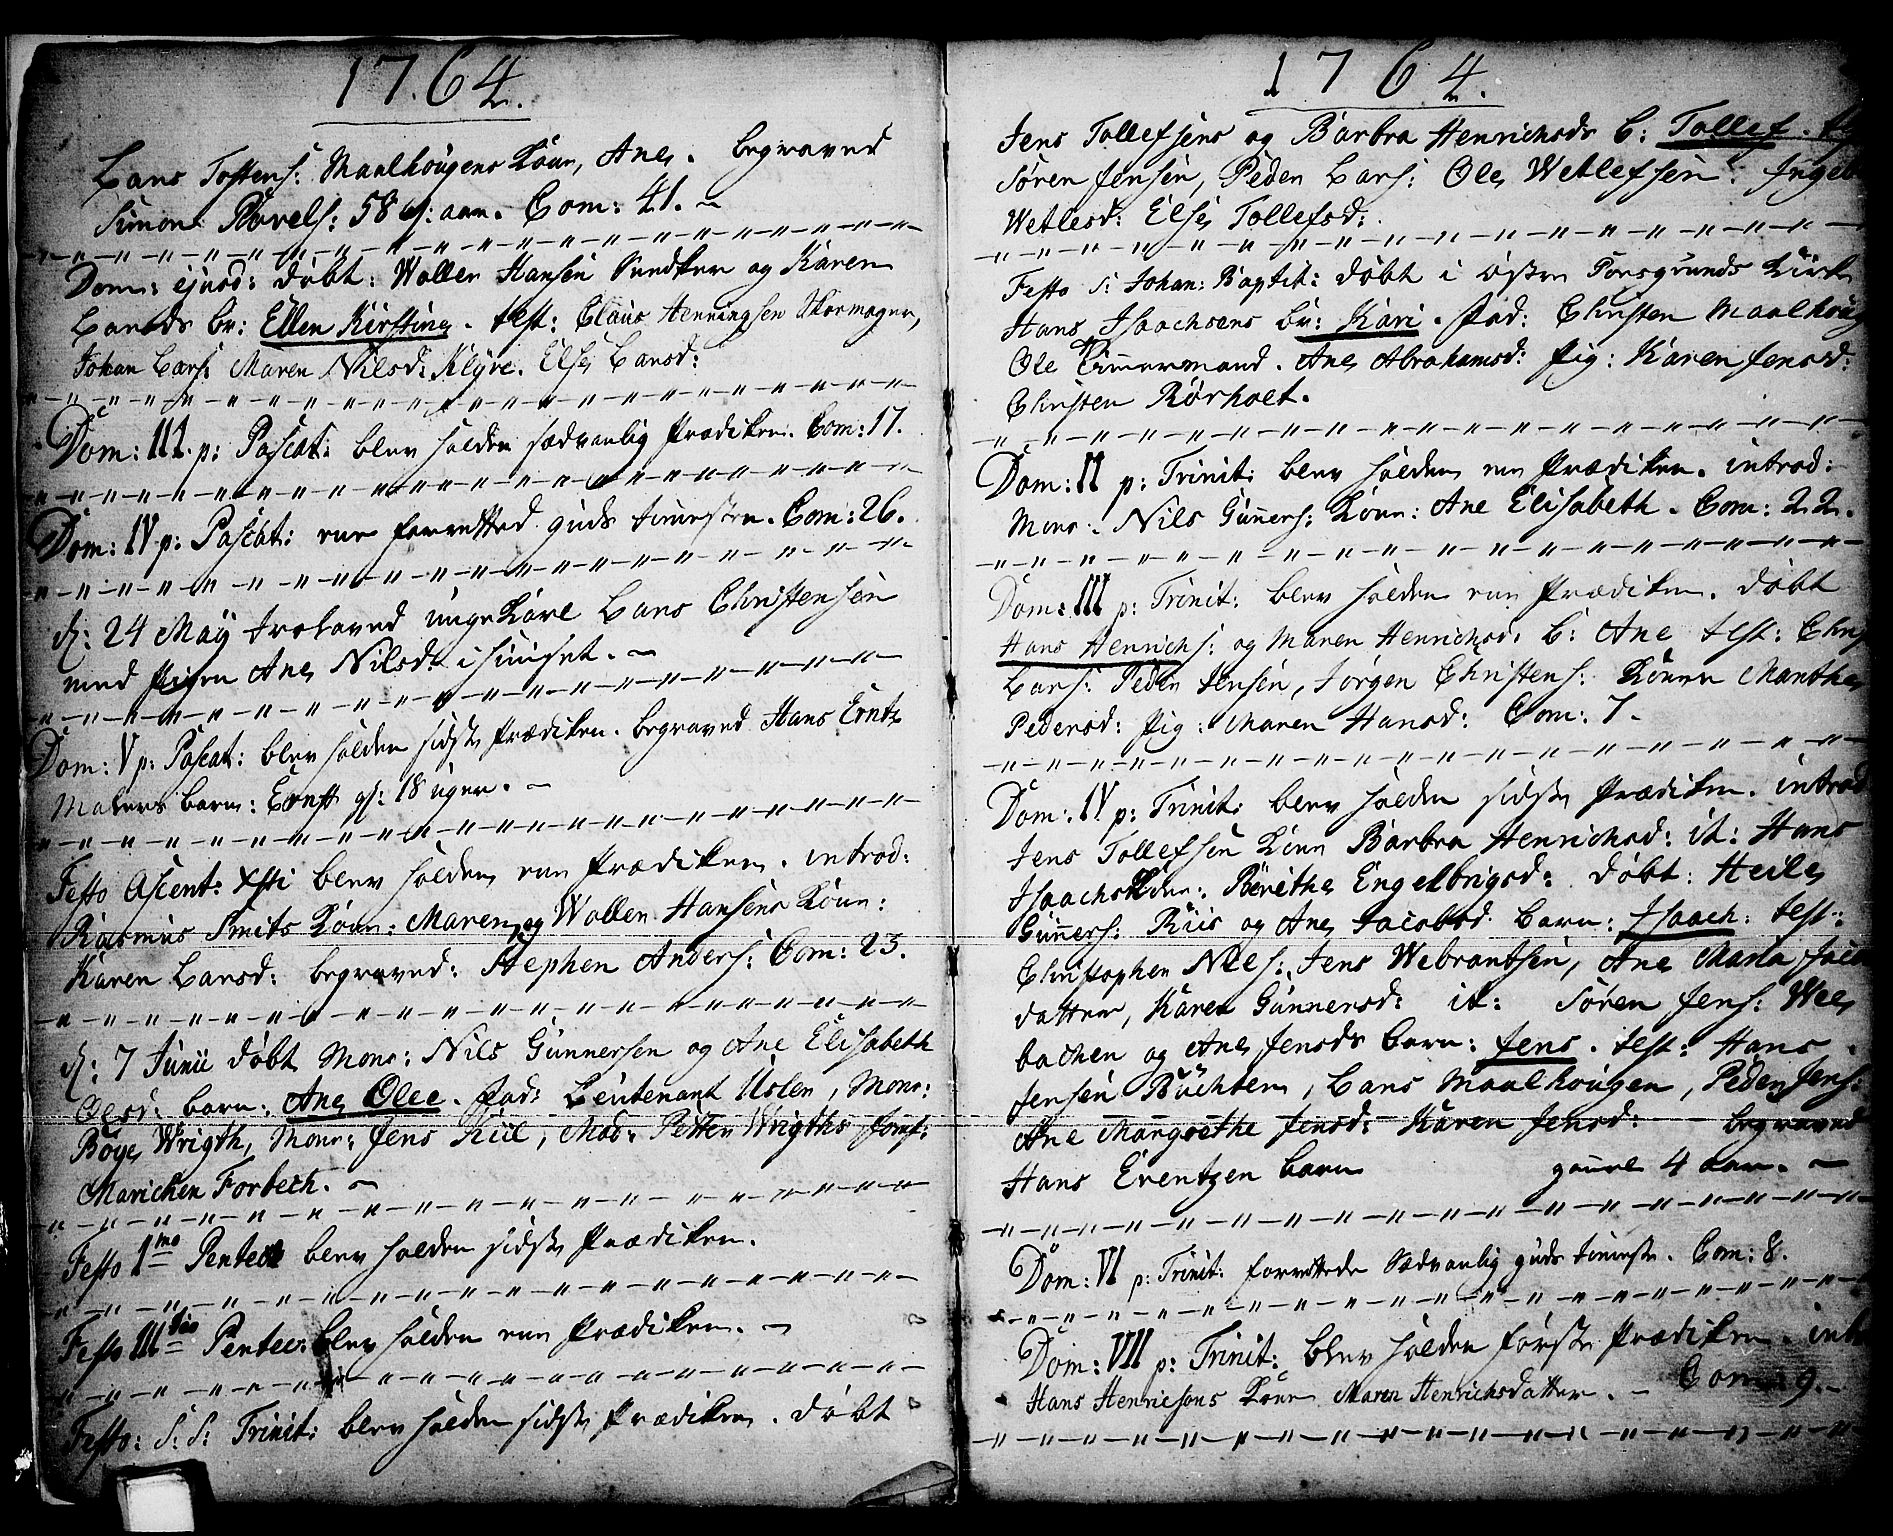 1764.
Lars Tostens: Maalhougens Kone, Ane. begraved
Simon Povels: 58 aar. Com: 41.
Dom: ejusd: døbt: Woller Hansen Snedker og Karen
Larsds br: Ellen Kirstine. test: Claus Henningsen Skomager,
Johan Lars: Maren Nilsd: Klyve. Else Larsd:
Dom: III. p: Pascat: blev holden sædvanlig Prædiken. Com: 17.
Dom: IV p: Pascat: var forrettet guds tieneste. Com: 26.
d: 24 May troloved unge Karl Lars Christensen
med Pigen Ane Nilsd: i huuset.
Dom: V p: Pascat: blev holden sidste Prædiken. begraved Hans Erntz
Malers barn: Ernst gl: 18 uger.
Festo Ascent: Xsti blev holden een Prædiken. introd:
Rasmus Smits Kone: Maren, og Woller Hansens Kone:
Karen Larsd: begraved: Stephen Anders: Com: 23.
d: 7 Junii døbt Mons: Nils Gunnersen og Ane Elisabeth
Olesd: barn: Ane Olee. fad: Leutenant Uslen, Mons:
Boye Wrigth, Mons: Jens Kiil, Mad: Petter Wrigths Jomf:
Marichen Forbech.
Festo 1mo Pentec: blev holden sidste Prædiken.
Festo III tio Pentec: blev holden een Prædiken.
Festo: S: S: Trinit: blev holden sidste Prædiken. døbt
1764.
Jens Tollefsens og Barbra Henrichsds b: Tollef.
Søren Jensen, Peder Lars: Ole Wetlefsen: Ingeb
Wetlesd: Else Tollefsd:
Festo S: Johan: Baptist: døbt i Østre Porsgrunds Kirke
Hans Isaachsens br: Kari. fad: Christen Maalhoug
Ole Timmermand. Ane Abrahamsd: pig: Karen Jensd:
Christen Rørholt.
Dom: II p: Trinit: blev holden een Prædiken. introd:
Mons: Nils Gunners: Kone: Ane Elisabeth. Com: 22.
Dom: III p: Trinit: blev holden een Prædiken. døbt
Hans Henrichs: og Maren Henrichsd: b: Ane test: Chr
Lars: Peder Jensen, Jørgen Christens: Kone Manthe
Pedersd: pig: Maren Hansd: Com: 7.
Dom: IV p: Trinit: blev holden sidste Prædiken. introd
Jens Tollefsen Kone Barbra Henrichsd: it: Hans
Isaachs Kone: Berethe Engelbrigsd: døbt: Heile
Gunners: Riis og Ane Jacobsd barn: Isaach: test:
Christopher Niels: Jens Webrantsen, Ane Maria Jaco
datter, Karen Gunnersd: it: Søren Jens: Wee
bachen og Ane Jensds barn: Jens. test: Hans
Jensen Buchten, Lars Maalhougen, Peder Jens:
Ane Margrethe Jensd: Karen Jensd: begraved
Hans Erentzen barn gaml 4 aar.
Dom: VI p: Trinit: forrettede Sædvanlig guds tieneste. Com: 8.
Dom: VII p: Trinit: blev holden første Prædiken. intro
Hans Henricsons Kone Maren Henrichsdatter. Com: 9.